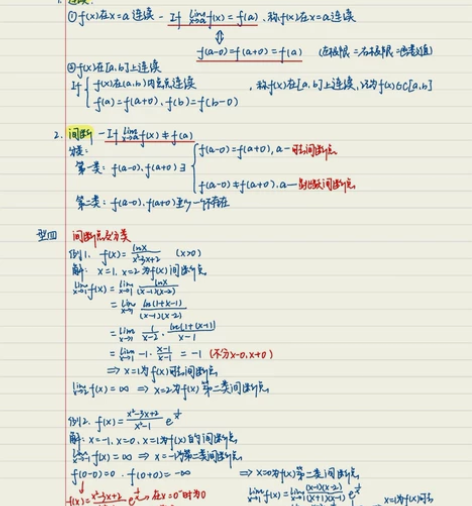 1. 连续
① f(x)在x=a连续 - If lim_{x→a} f(x) = f(a), 称f(x)在x=a连续
⇕
f(a-0)=f(a+0)=f(a) (左极限=右极限=函数值)
② f(x)在[a,b]上连续
If { f(x)在(a,b)内点点连续
f(a)=f(a+0), f(b)=f(b-0)
, 称f(x)在[a,b]上连续, 记为f(x)∈C[a,b]
2. 间断 - If lim_{x→a} f(x) ≠ f(a)
分类:
第一类: f(a-0), f(a+0) ∃ { f(a-0)=f(a+0), a—可去间断点
f(a-0)≠f(a+0), a—跳跃间断点
第二类: f(a-0), f(a+0)至少一个不存在
型四 间断点及分类
例1. f(x)= lnx/(x²-3x+2) (x>0)
解: x=1, x=2为f(x)间断点
lim_{x→1} f(x) = lim_{x→1} lnx/((x-1)(x-2))
= lim_{x→1} ln(1+x-1)/((x-1)(x-2))
= lim_{x→1} 1/(x-2) · ln[1+(x-1)]/(x-1)
= lim_{x→1} -1 · (x-1)/(x-1) = -1 (不分x-0, x+0)
⇒ x=1为f(x)可去间断点
lim_{x→2} f(x) = ∞ ⇒ x=2为f(x)第二类间断点
例2. f(x)= (x²-3x+2)/(x²-1) e^{1/x}
解: x=-1, x=0, x=1为f(x)的间断点
lim_{x→-1} f(x) = ∞ ⇒ x=-1为第二类间断点
f(0-0)=0, f(0+0)=-∞ ⇒ x=0为f(x)第二类间断点
f(x)= (x²-3x+2)/(x²-1) e^{1/x}, 在x=0⁻时为0
lim_{x→1} f(x) = lim_{x→1} (x-1)(x-2)/((x+1)(x-1)) e^{1/x}
x=1为f(x)可去